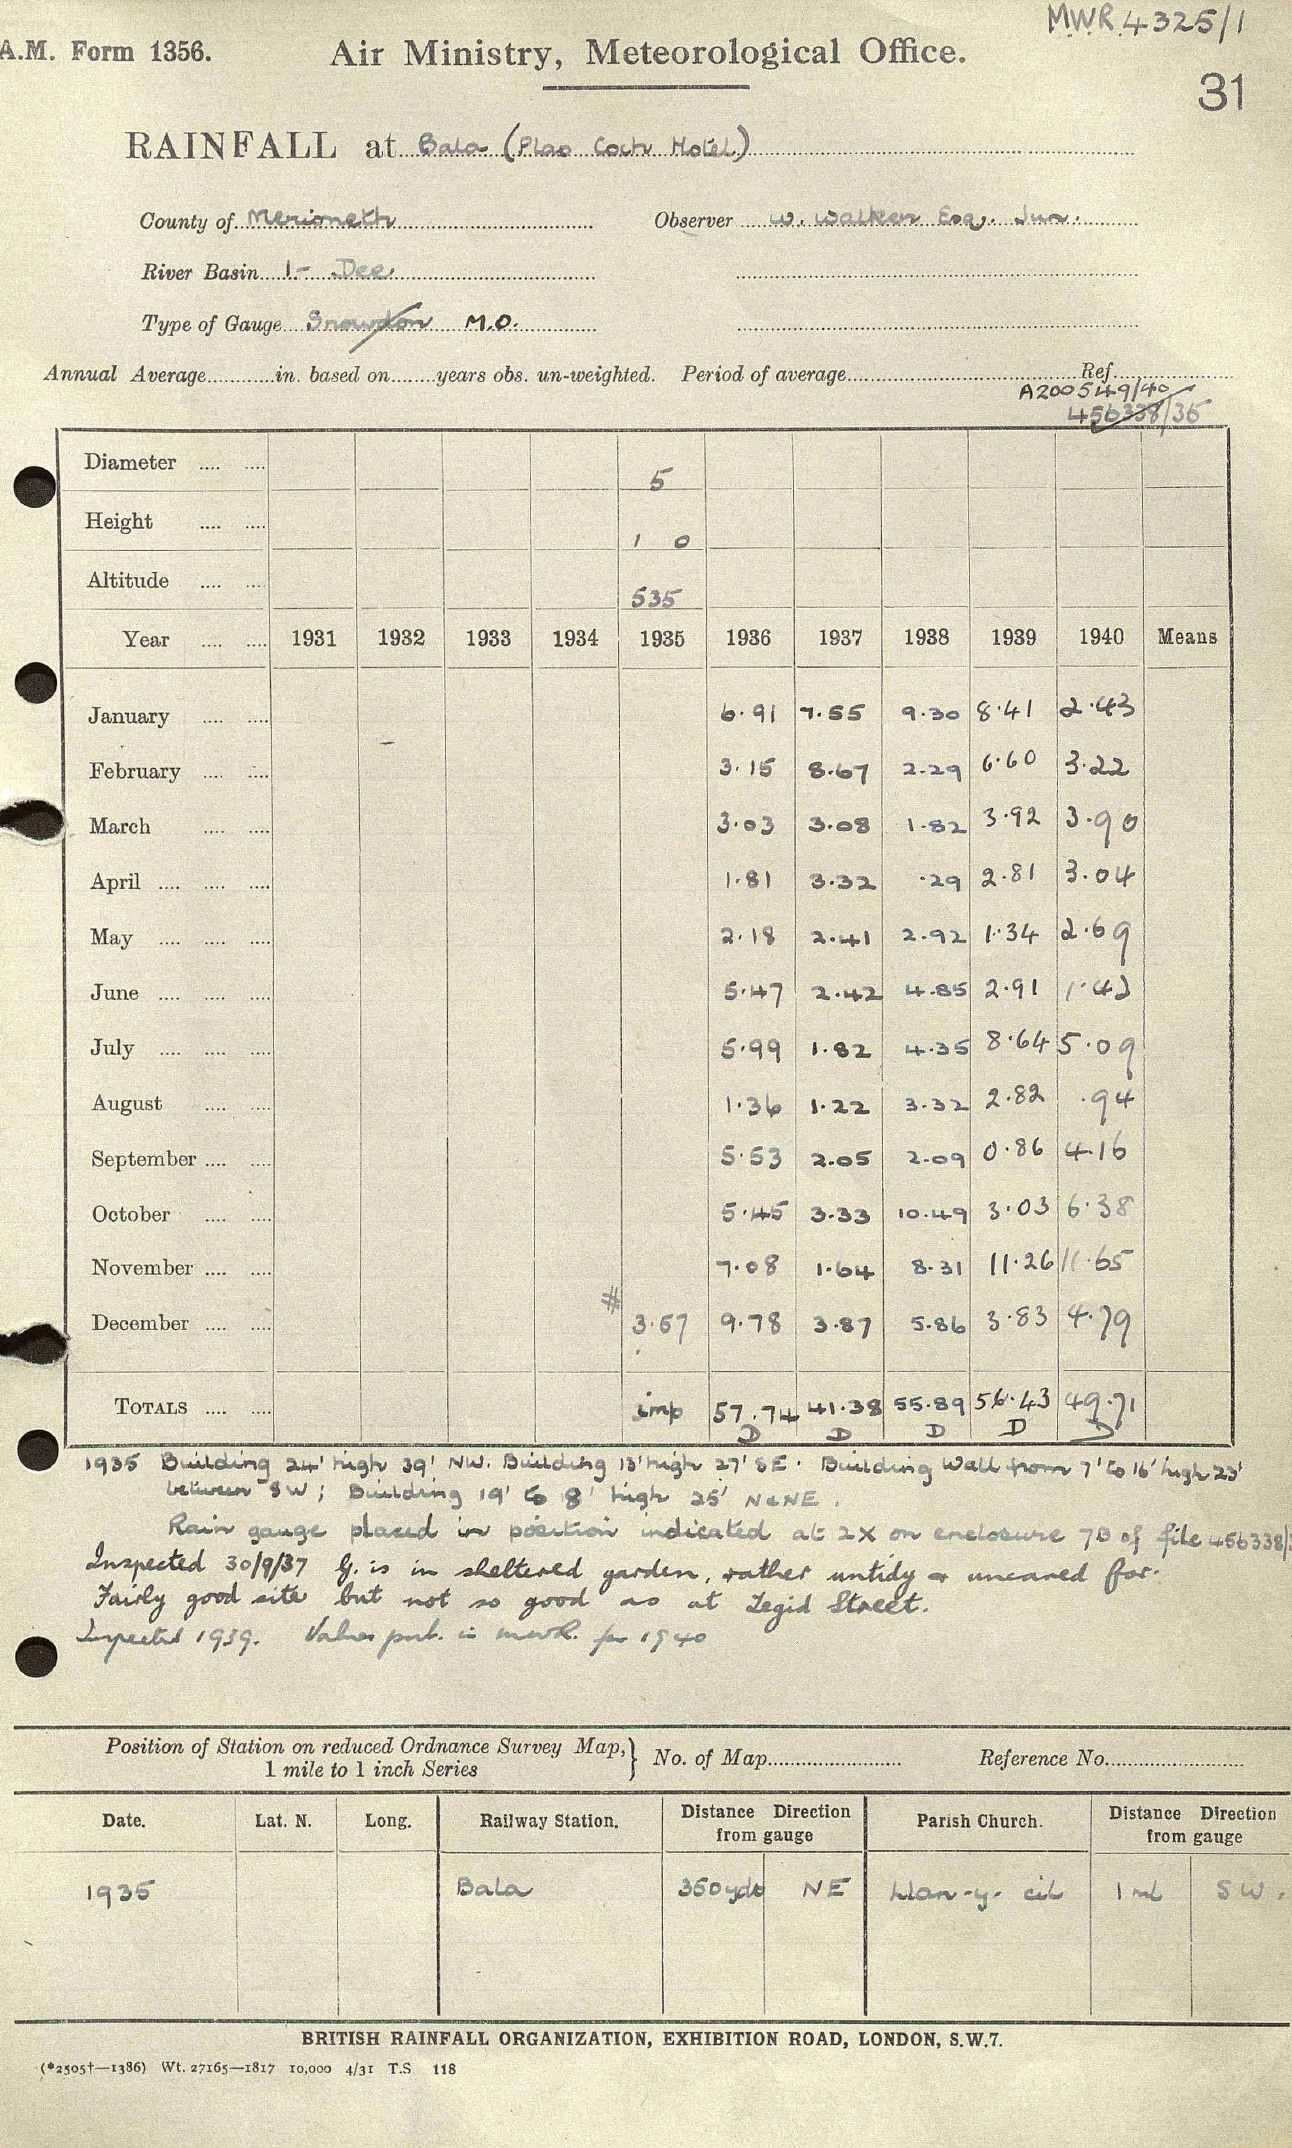 MWR 4325/1
A.M. Form 1356. Air Ministry, Meteorological Office.
31
RAINFALL at Bala (Plas Coch Hotel)
County of Merioneth Observer W. Walker Esq. Jun.
River Basin 1- Dee
Type of Gauge Snowdon M.O.
Annual Average in. based on years obs. un-weighted. Period of average Ref.
A200549/40
456338/35
Diameter 5
Height 1 0
Altitude 535
Year 1931 1932 1933 1934 1935 1936 1937 1938 1939 1940 Means
January 6.91 7.55 9.30 8.41 2.43
February 3.15 8.67 2.29 6.60 3.22
March 3.03 3.08 1.82 3.92 3.90
April 1.81 3.32 .29 2.81 3.04
May 2.18 2.41 2.92 1.34 2.69
June 5.47 2.42 4.85 2.91 1.42
July 5.99 1.82 4.35 8.64 5.09
August 1.36 1.22 3.32 2.82 .94
September 5.53 2.05 2.09 0.86 4.16
October 5.45 3.33 10.49 3.03 6.38
November 7.08 1.64 8.31 11.26 11.65
December # 3.57 9.78 3.87 5.86 3.83 4.79
TOTALS imp 57.74 41.38 55.89 56.43 49.71
D D D D D
1935 Building 24' high 39' NW. Building 13' high 27' SE. Building Wall from 7' to 16' high 23'
between SW; Building 19' to 8' high 25' N&NE.
Rain gauge placed in position indicated at 2X on enclosure 7B of file 456338/
Inspected 30/9/37 G. is in sheltered garden, rather untidy & uncared for.
Fairly good site but not so good as at Tegid Street.
Inspected 1939. Values pub. in for 1940
Position of Station on reduced Ordnance Survey Map, } No. of Map Reference No.
1 mile to 1 inch Series
Date. Lat. N. Long. Railway Station. Distance Direction Parish Church. Distance Direction
from gauge from gauge
1935 Bala 350yds NE Llan-y-cil 1 ml SW.
BRITISH RAINFALL ORGANIZATION, EXHIBITION ROAD, LONDON, S.W.7.
(*2505†—1386) Wt. 27165—1817 10,000 4/31 T.S. 118